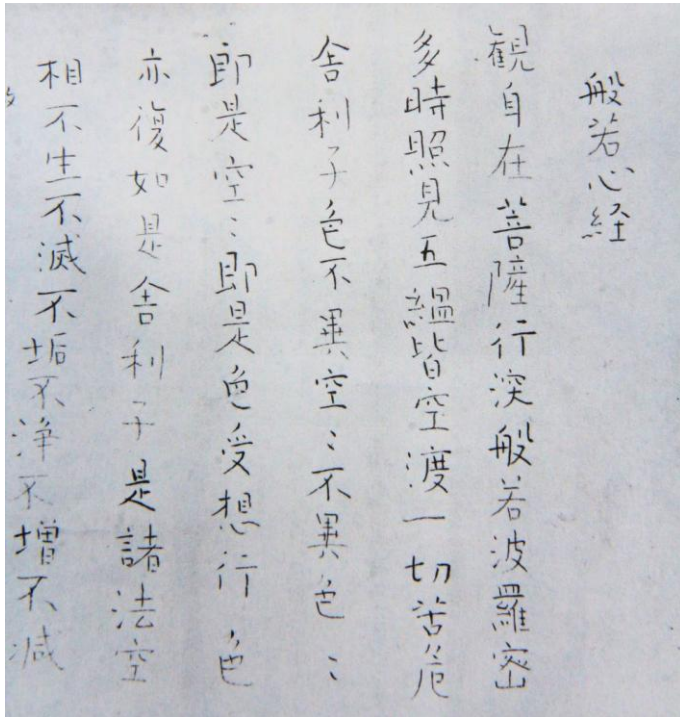 般若心経
観自在菩薩行深般若波羅密
多時照見五縕皆空渡一切苦厄
舎利子色不異空〻不異色〻
即是空〻即是色受想行色
亦復如是舎利子是諸法空
相不生不滅不垢不浄不增不減